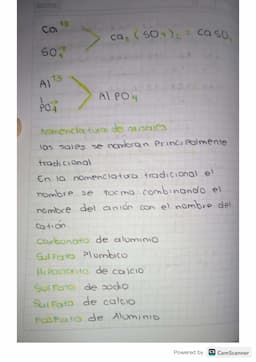 Ca+2
SO4-2
Ca2(SO4)2 = CaSO4
Al+3
PO4-3
AlPO4
Nomenclatura de oxisales
las sales se nombran principalmente
tradicional
En la nomenclatura tradicional el
nombre se forma combinando el
nombre del anión con el nombre del
catión.
Carbonato de aluminio
Sulfato Plumbico
Hipoclorito de calcio
Sulfato de sodio
Sulfato de calcio
Fosfato de Aluminio
Powered by CS CamScanner